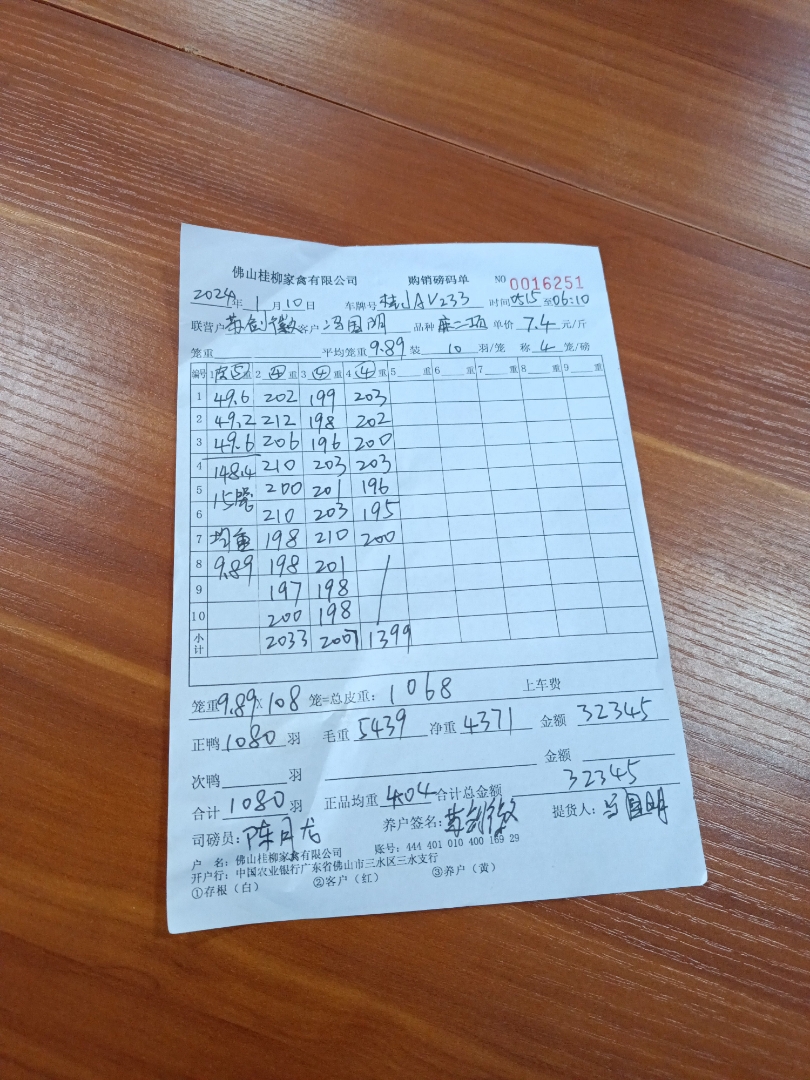 佛山桂柳家禽有限公司 购销磅码单 NO 0016251
2024年 1月10日 车牌号 桂JAV233 时间0515至06:10
联营户 客户 冯国明 品种 麻二项 单价 7.4 元/斤
笼重 平均笼重9.89 装 10 羽/笼 称 4 笼/磅
编号 1皮⑤重 2 ④ 重 3 ④ 重 4 ④ 重 5 重 6 重 7 重 8 重 9 重
1 49.6 202 199 203
2 49.2 212 198 202
3 49.6 206 196 200
4 148.4 210 203 203
5 15笼 200 201 196
6 210 203 195
7 均重 198 210 200
8 9.89 198 201 /
9 197 198
10 200 198
小计 2033 2007 1399
笼重9.89×108 笼=总皮重: 1068 上车费
正鸭 1080 羽 毛重 5439 净重 4371 金额 32345
次鸭 羽 金额
合计 1080 羽 正品均重 4.04 合计总金额 32345
司磅员: 陈月龙 养户签名: 提货人: 冯国明
户 名: 佛山桂柳家禽有限公司 账号: 444 401 010 400 169 29
开户行: 中国农业银行广东省佛山市三水区三水支行
①存根(白) ②客户(红) ③养户(黄)